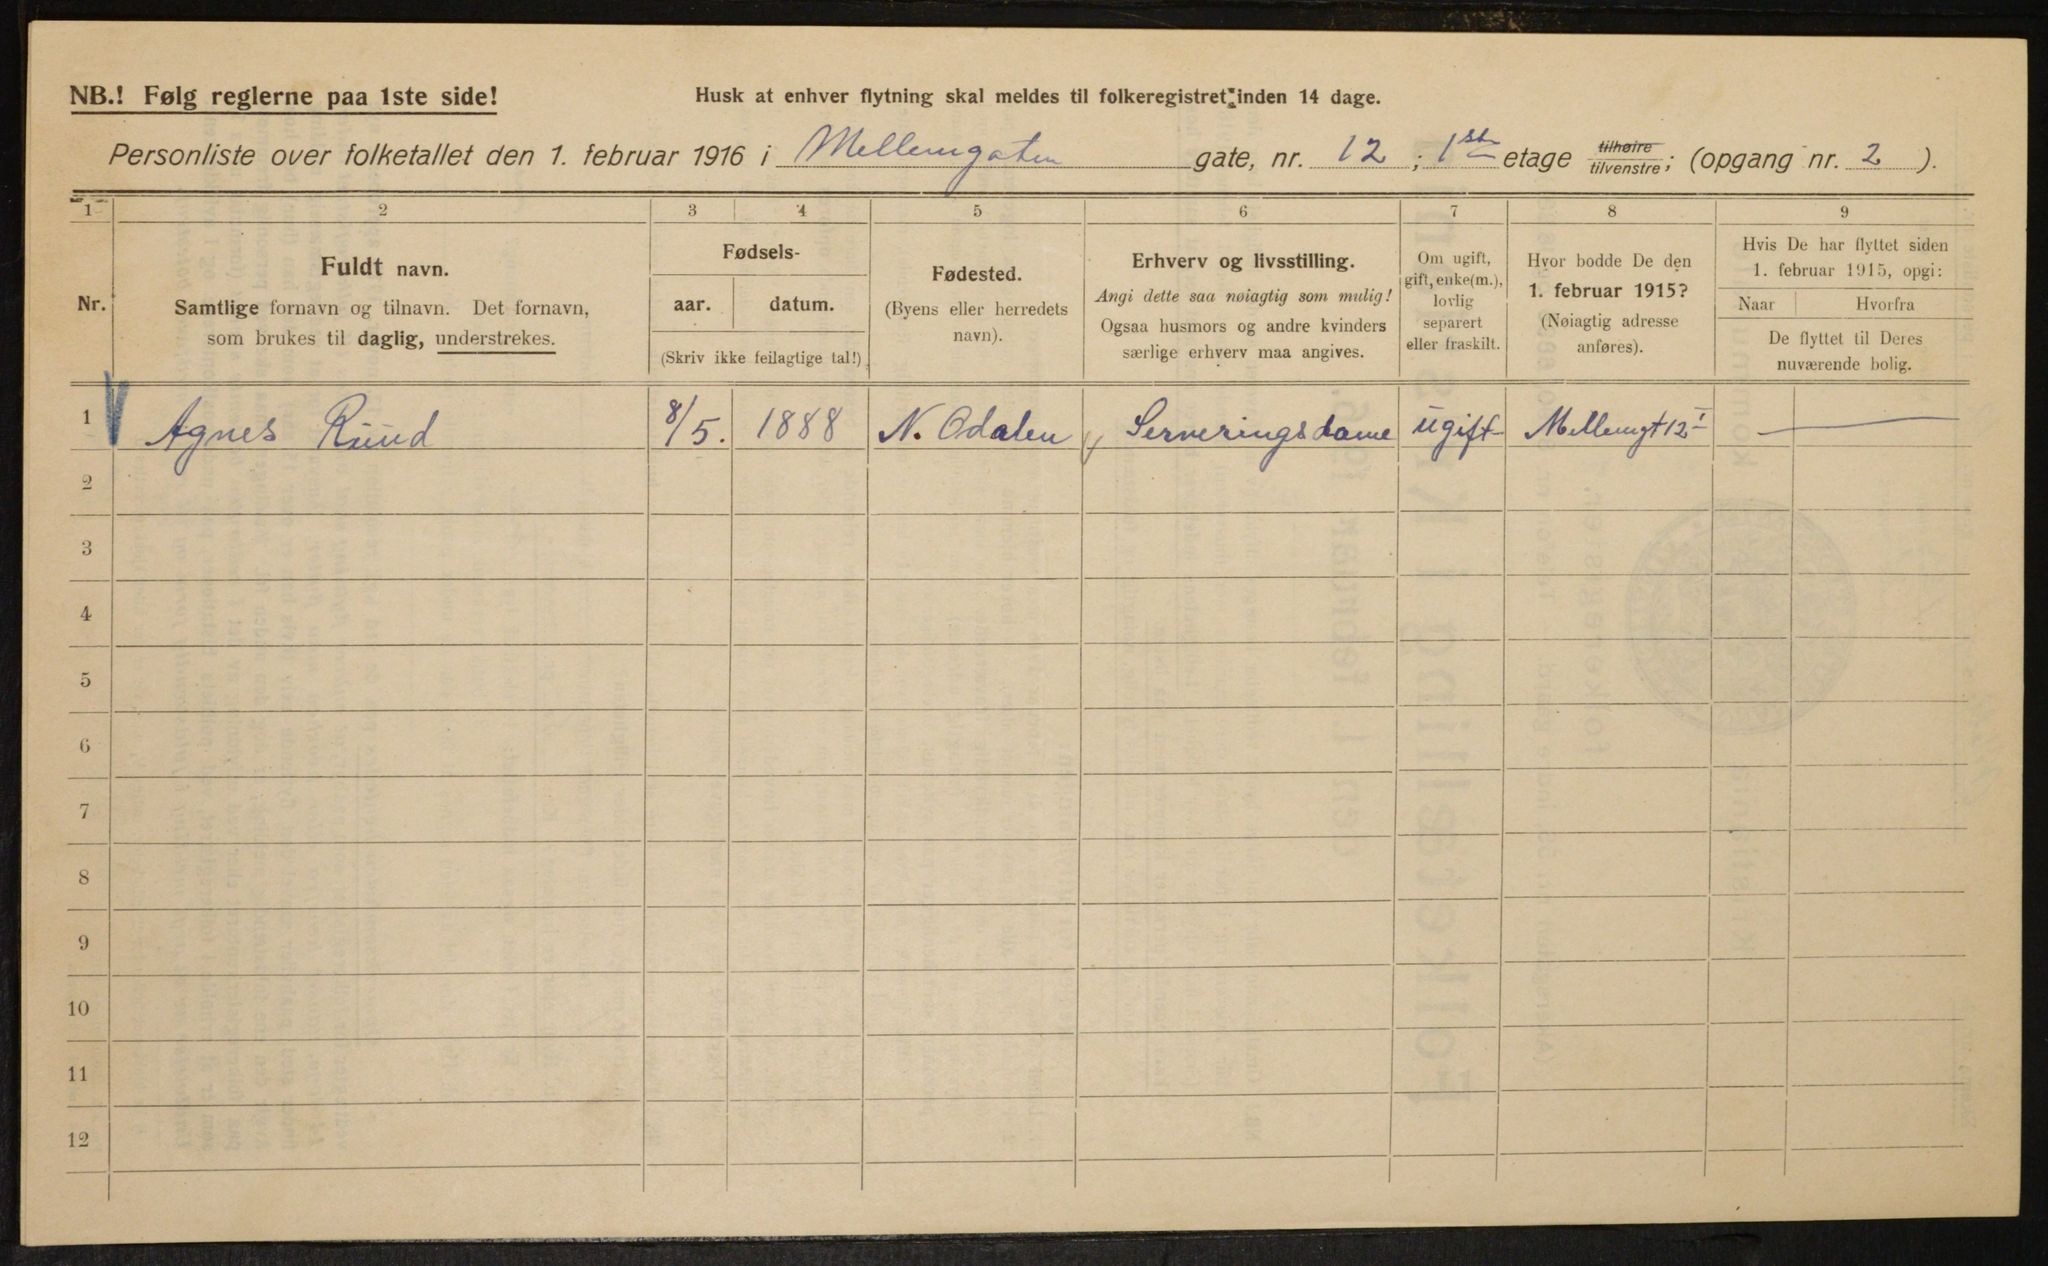 NB.! Følg reglerne paa 1ste side!
Husk at enhver flytning skal meldes til folkeregistret inden 14 dage.
Personliste over folketallet den 1. februar 1916 i Mellemgaten gate, nr. 12 ; 1ste etage tilhøire/tilvenstre; (opgang nr. 2 ).
1 2 3 4 5 6 7 8 9
Nr.
Fuldt navn.
Samtlige fornavn og tilnavn. Det fornavn,
som brukes til daglig, understrekes.
Fødsels-
aar. datum.
(Skriv ikke feilagtige tal!)
Fødested.
(Byens eller herredets
navn).
Erhverv og livsstilling.
Angi dette saa nøiagtig som mulig!
Ogsaa husmors og andre kvinders
særlige erhverv maa angives.
Om ugift,
gift, enke(m.),
lovlig
separert
eller fraskilt.
Hvor bodde De den
1. februar 1915?
(Nøiagtig adresse
anføres).
Hvis De har flyttet siden
1. februar 1915, opgi:
Naar Hvorfra
De flyttet til Deres
nuværende bolig.
1 Agnes Ruud 8/5. 1888 N. Odalen Serveringsdame ugift Mellemgt 12 I
2
3
4
5
6
7
8
9
10
11
12